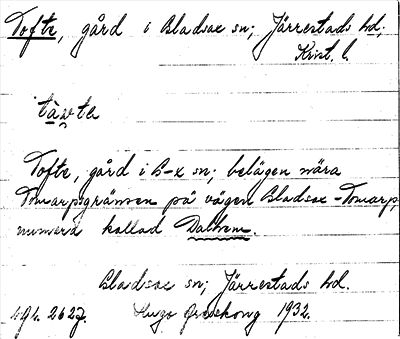 Tofte, gård i Bladsax sn; Järrestads hd;
Krist. l.
tàvte
Tofte, gård i B-x sn; belägen nära
Tomarpsgränsen på vägen Bladsax - Tomarp,
numera kallad Dalhem.
Bladsax sn; Järrestads hd.
Hugo 1932.